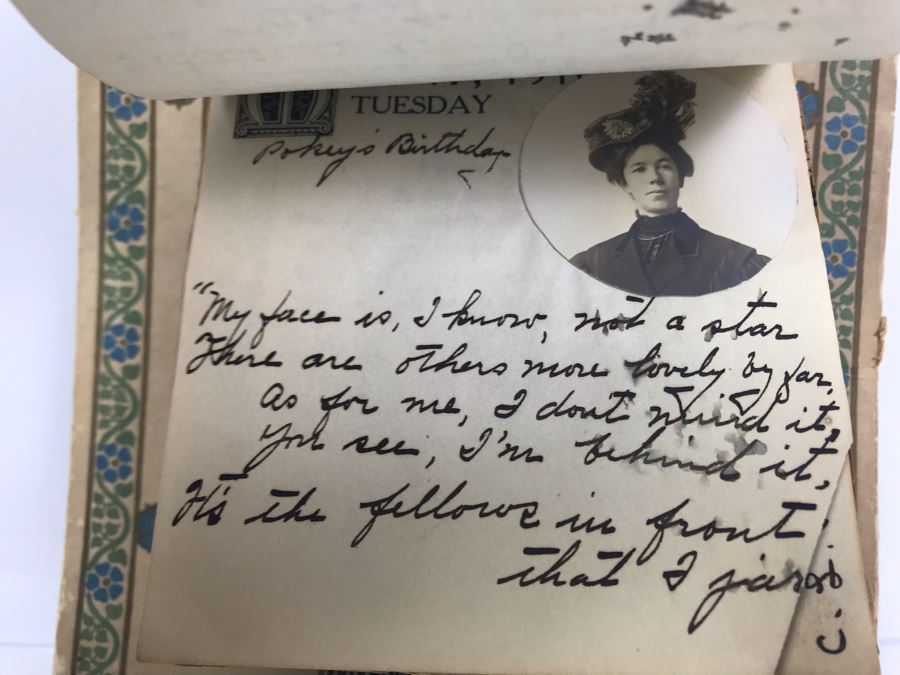 TUESDAY
Pokey's Birthday
"My face is, I know, not a star
There are others more lovely by far,
As for me, I dont mind it,
You see, I'm behind it,
It's the fellows in front
that I jar.